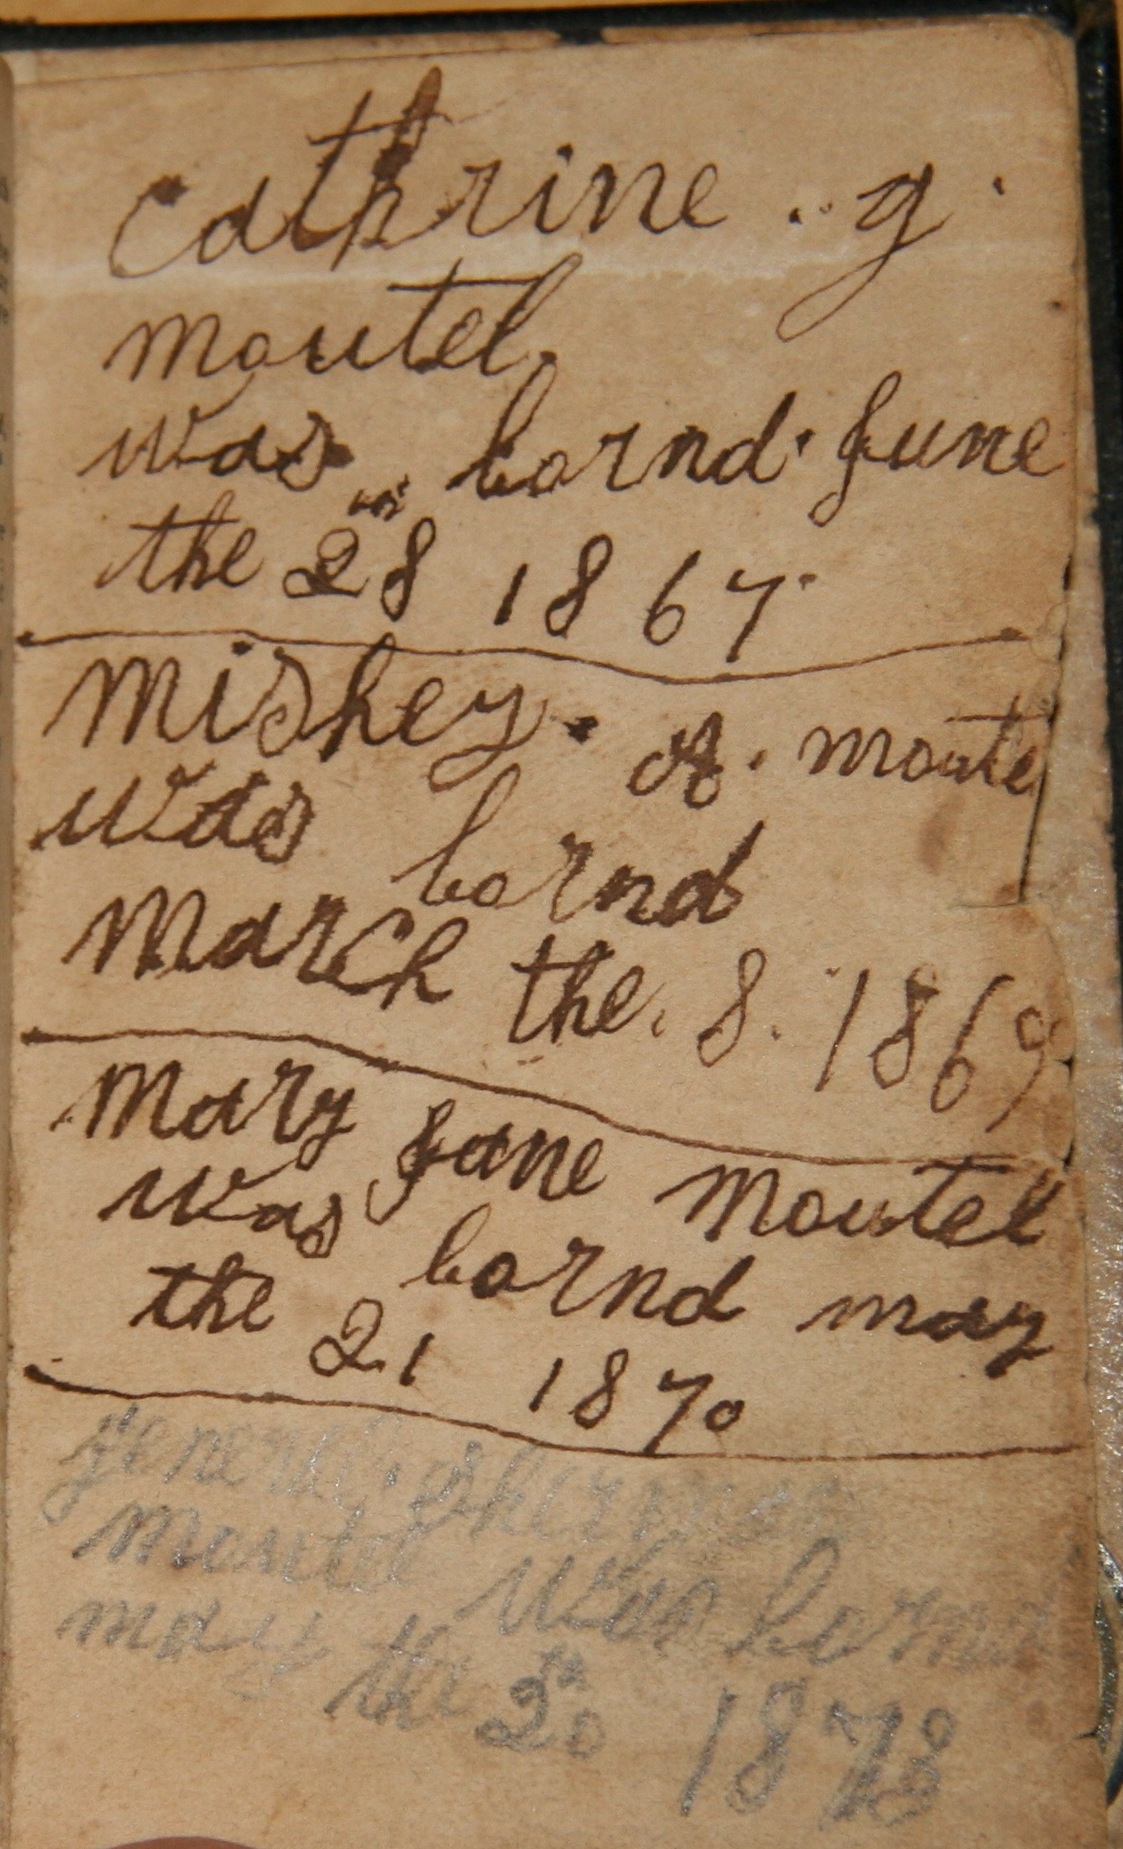 Cathrine . g .
moutel.
was bornd. June
the 28 1867.
mishey. A. moute
was bornd
March the. 8. 1869
Mary Jane Moutel
was bornd may
the 21 1870
general sherman
moutel was bornd
may the 20 1878